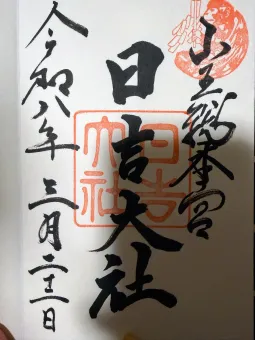 山王総本宮
日吉大社
令和八年三月二十二日
日吉大社